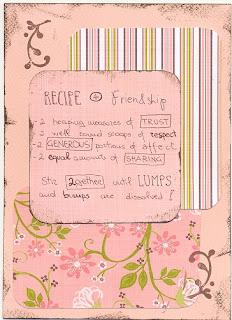 RECIPE Friendship
- 2 heaping measures of TRUST
- 2 well round scoops of respect
- 2 GENEROUS portions of affect
- 2 equal amounts of SHARING
Stir 2gether until LUMPS
and bumps are dissolved!